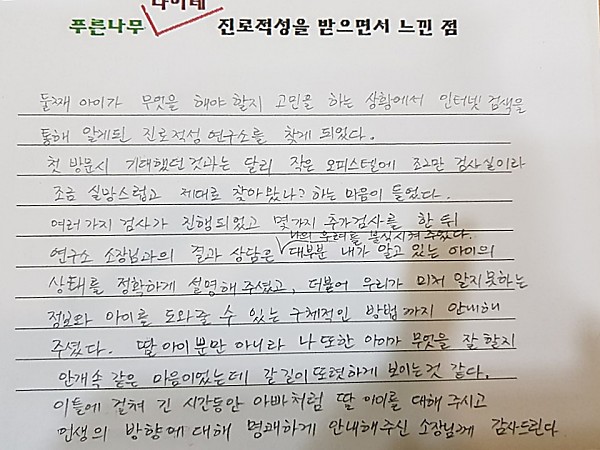 푸른나무 진로적성을 받으면서 느낀 점
둘째 아이가 무엇을 해야 할지 고민을 하는 상황에서 인터넷 검색을
통해 알게된 진로적성 연구소를 찾게 되었다.
첫 방문시 기대했던 것과는 달리 작은 오피스텔에 조그만 검사실이라
조금 실망스럽고 제대로 찾아왔나? 하는 마음이 들었다.
여러가지 검사가 진행되었고 몇가지 추가검사를 한 뒤
나의 우려를 불식시켜 주었다.
연구소 소장님과의 결과 상담은 대부분 내가 알고 있는 아이의
상태를 정확하게 설명해 주셨고, 더불어 우리가 미처 알지못하는
정보와 아이를 도와줄 수 있는 구체적인 방법까지 안내해
주셨다. 딸아이뿐만 아니라 나 또한 아이가 무엇을 잘 할지
안개속 같은 마음이었는데 갈길이 또렷하게 보이는것 같다.
이틀에 걸쳐 긴 시간동안 아빠처럼 딸 아이를 대해 주시고
인생의 방향에 대해 명쾌하게 안내해주신 소장님께 감사드린다